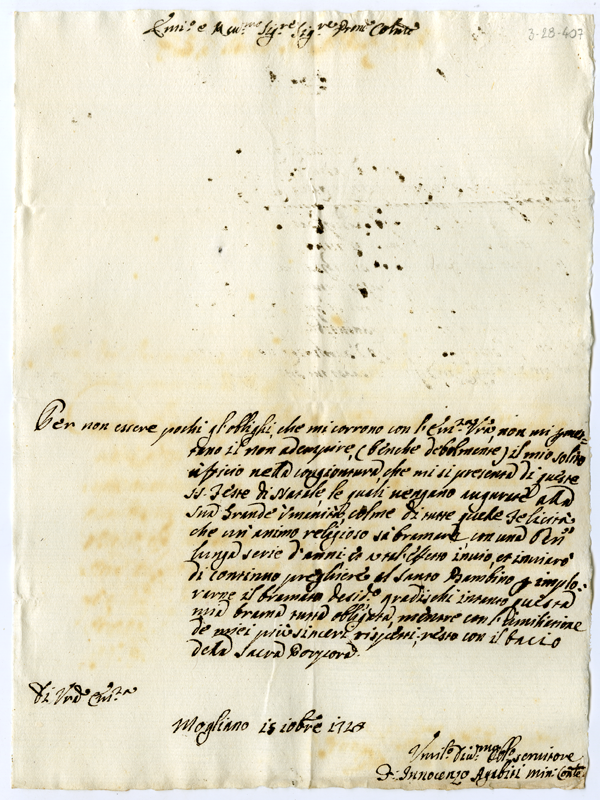 3-28-407
Em.o e Rev.mo Sig.re Sig.re Prone Colmo
Per non essere pochi gl'obblighi, che mi corrono con l'Em.za Vra, non mi
tano il non adempire, (benche debolmente) il mio solito
ufficio nella congiontura, che mi si presenta di queste
SS. Feste di Natale, le quali vengano augurate alla
Sua Grande Umanità, colme di tutte quelle felicità
che un'animo religioso sà bramare con una ben
lunga serie d'anni: et a tal'effetto invio, et inviarò
di continuo preghiere al Santo Bambino p implo-
rarne il bramato gradischi intanto questa
mia brama tutta obligata, mentre con l'umiliazione
de miei più sinceri rispetti, resto con il bacio
della Sacra Porpora.
Di Vra Em.za
Mogliano 15 xbre 1728
Umil.o Div.mo Obl.o servitore
F. Innocenzo Min: Conv.e